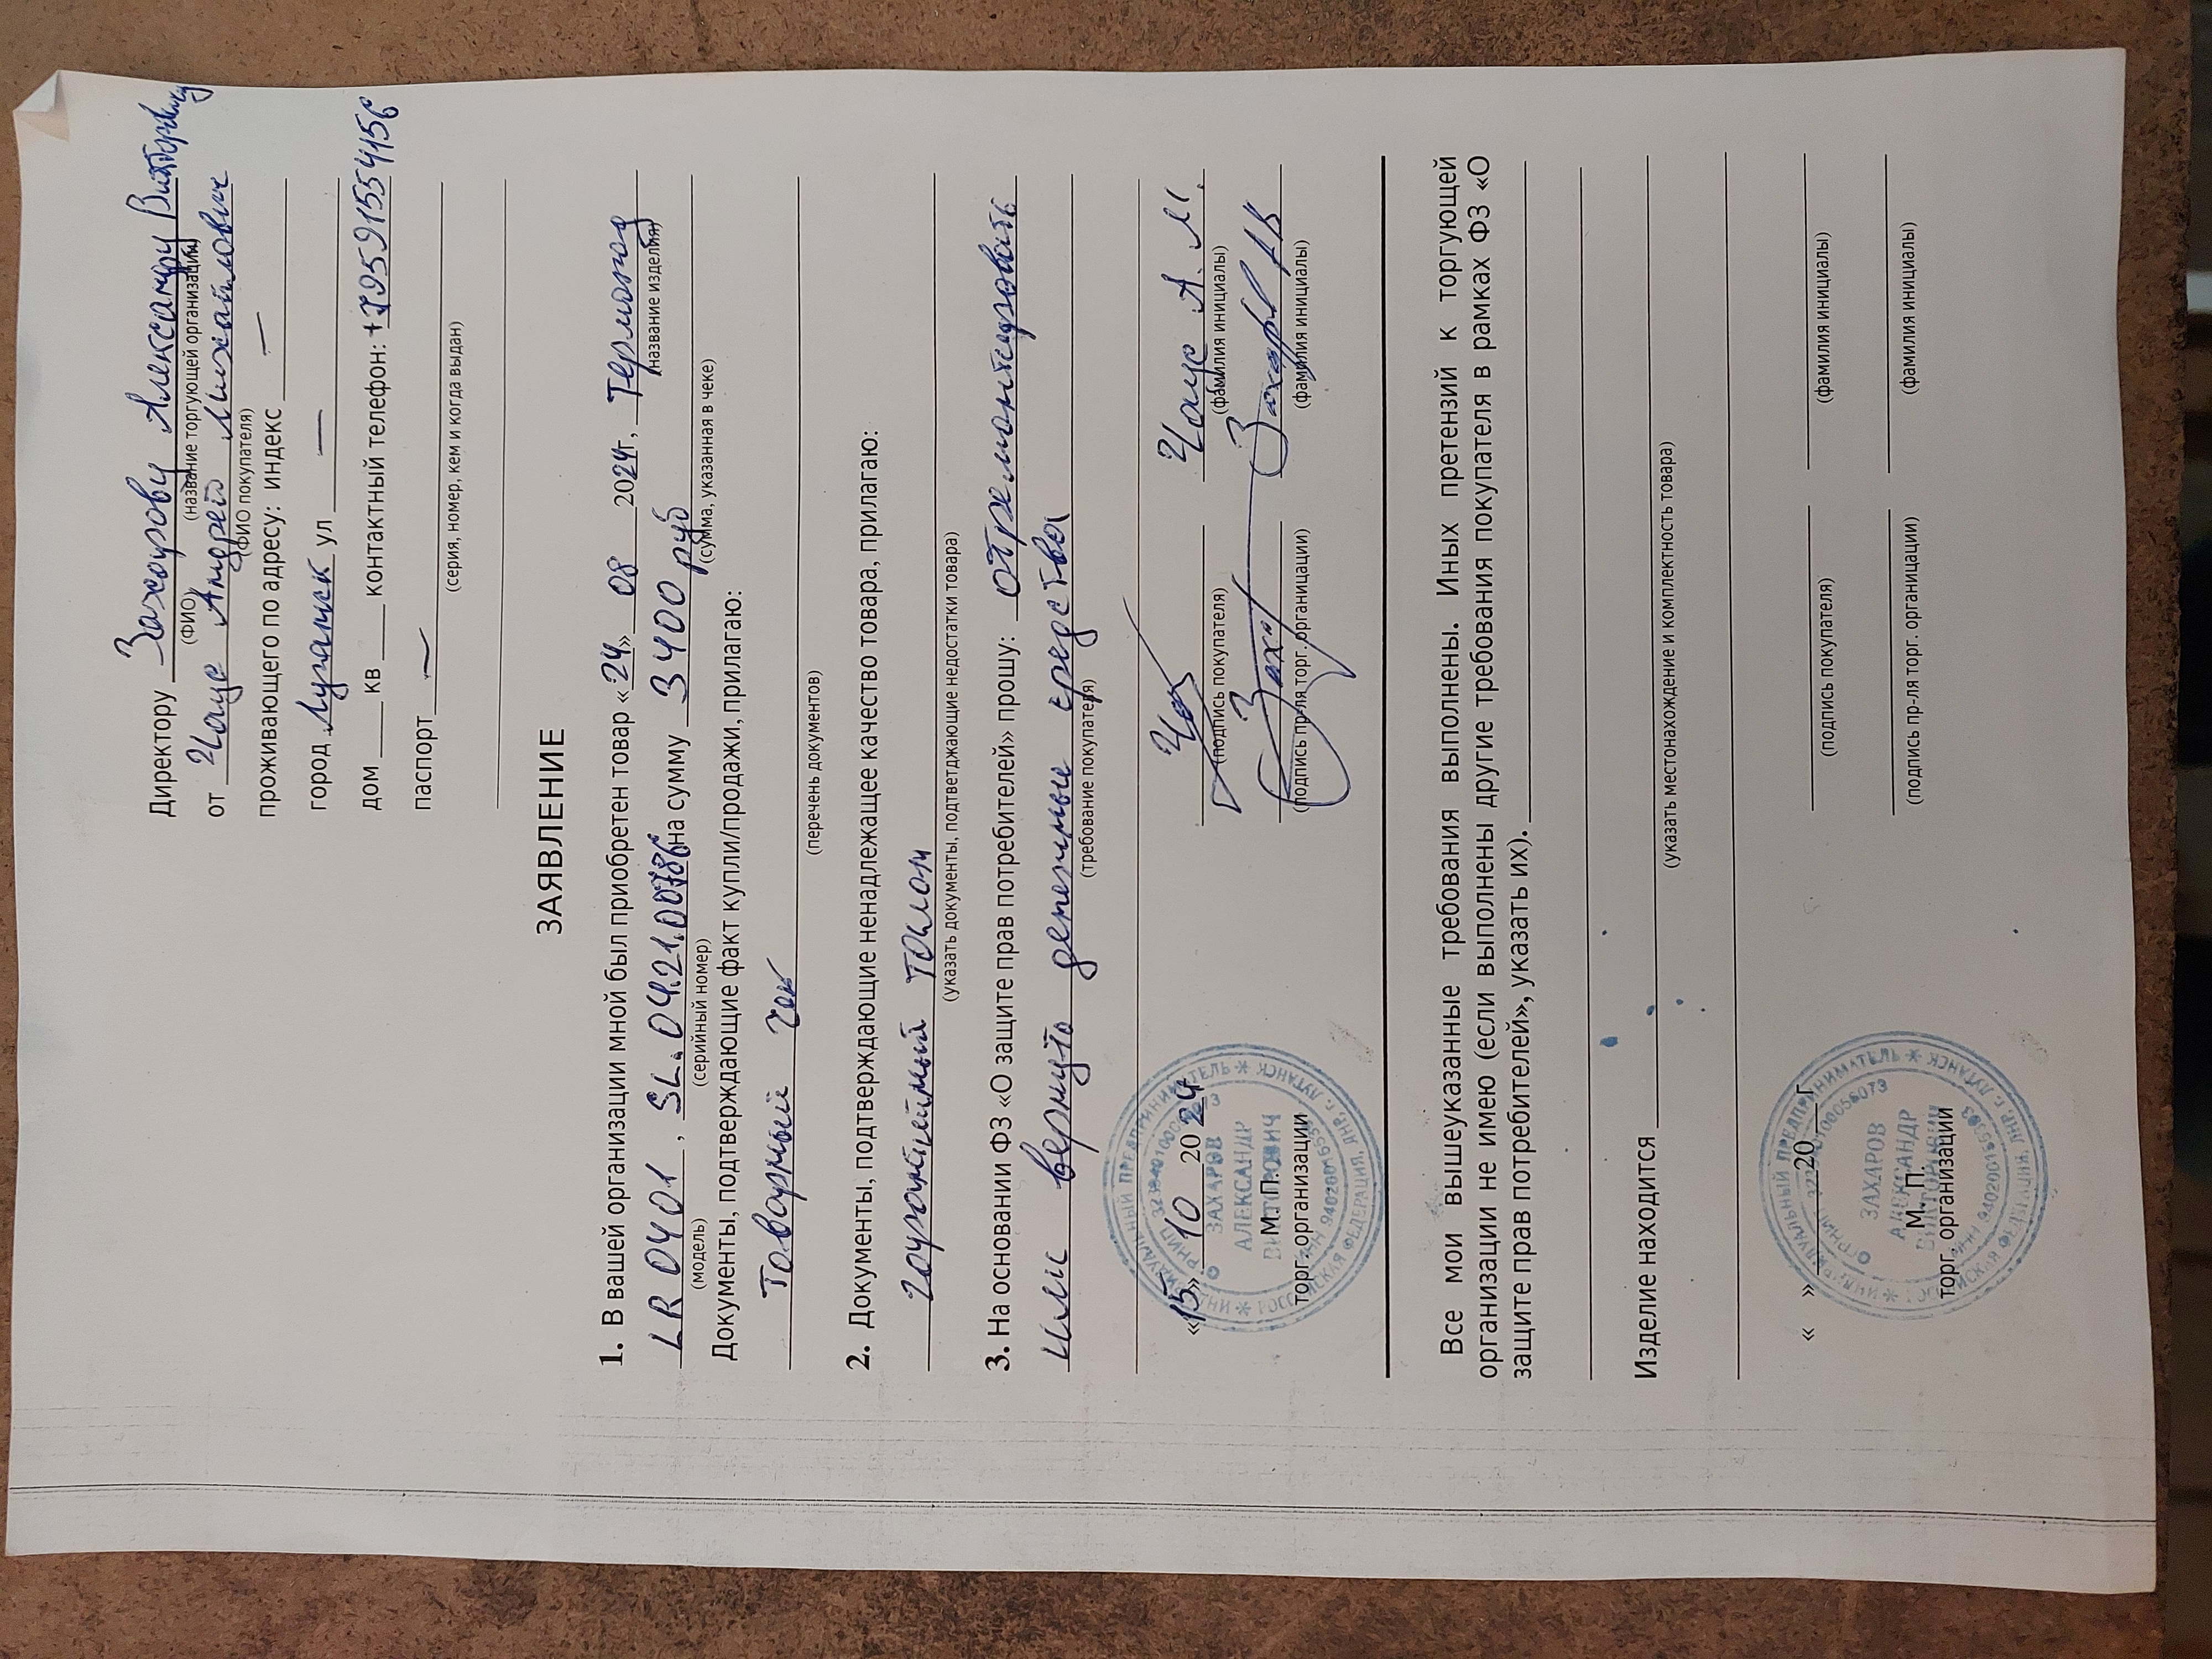 Директору Захарову Александру Викторовичу
(ФИО) (название торгующей организации)
от Чаус Андрей Михайлович
(ФИО покупателя)
проживающего по адресу: индекс —
город Луганск ул —
дом ____ кв ____ контактный телефон: +79591554156
паспорт —
(серия, номер, кем и когда выдан)
ЗАЯВЛЕНИЕ
1. В вашей организации мной был приобретен товар «24» 08 2024г, Термопод
(название изделия)
LR 0401, SL.04.21.00786 на сумму 3400 руб
(модель) (серийный номер) (сумма, указанная в чеке)
Документы, подтверждающие факт купли/продажи, прилагаю:
Товарный чек
(перечень документов)
2. Документы, подтверждающие ненадлежащее качество товара, прилагаю:
гарантийный талон
(указать документы, подтветджающие недостатки товара)
3. На основании ФЗ «О защите прав потребителей» прошу: отремонтировать
или вернуть денежные средства
(требование покупателя)
«15» 10 2024 Чаус А. М.
(подпись покупателя) (фамилия инициалы)
М. П. Захаров АВ
торг. организации (подпись пр-ля торг. оргиницации) (фамилия инициалы)
ИНДИВИДУАЛЬНЫЙ ПРЕДПРИНИМАТЕЛЬ * РОССИЙСКАЯ ФЕДЕРАЦИЯ, ЛНР, г. ЛУГАНСК *
ЗАХАРОВ
АЛЕКСАНДР
ВИКТОРОВИЧ
Все мои вышеуказанные требования выполнены. Иных претензий к торгующей
организации не имею (если выполнены другие требования покупателя в рамках ФЗ «О
защите прав потребителей», указать их).
Изделие находится
(указать местонахождение и комплектность товара)
« » ____ 20 __ г
(подпись покупателя) (фамилия инициалы)
М. П.
торг. организации (подпись пр-ля торг. оргиницации) (фамилия инициалы)
ИНДИВИДУАЛЬНЫЙ ПРЕДПРИНИМАТЕЛЬ * РОССИЙСКАЯ ФЕДЕРАЦИЯ, ЛНР, г. ЛУГАНСК *
ЗАХАРОВ
АЛЕКСАНДР
ВИКТОРОВИЧ